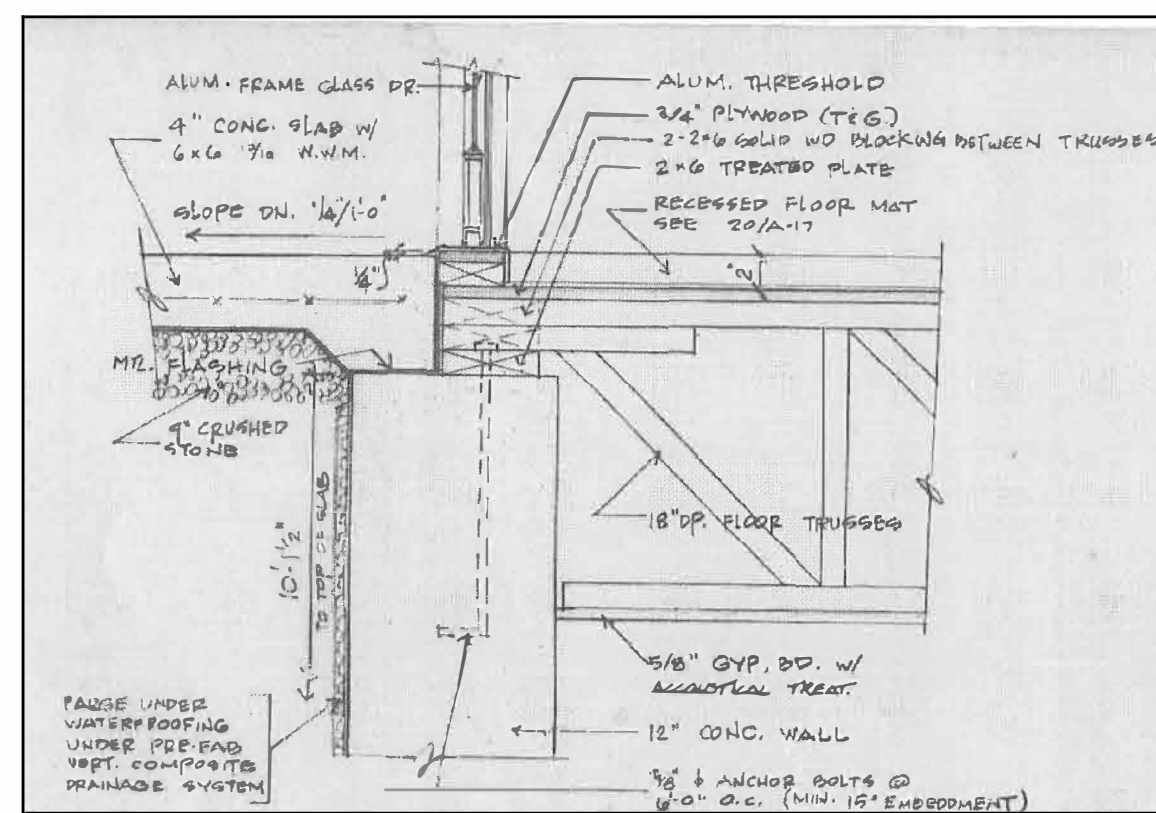 ALUM. FRAME GLASS DR.
4" CONC. SLAB W/
6x6 10/10 W.W.M.
SLOPE DN. 1/4"/1'-0"
1/4"
MTL. FLASHING
CRUSHED
STONE
10'-1 1/2"
TO TOP OF SLAB
PARGE UNDER
WATERPROOFING
UNDER PRE-FAB
VERT. COMPOSITE
DRAINAGE SYSTEM
ALUM. THRESHOLD
3/4" PLYWOOD (T&G.)
2-2x6 SOLID WD BLOCKING BETWEEN TRUSSES
2x6 TREATED PLATE
RECESSED FLOOR MAT
SEE 20/A-17
2"
18" DP. FLOOR TRUSSES
5/8" GYP. BD. W/
ACCOUSTICAL TREAT.
12" CONC. WALL
5/8" ϕ ANCHOR BOLTS @
6'-0" O.C. (MIN. 15" EMBEDDMENT)